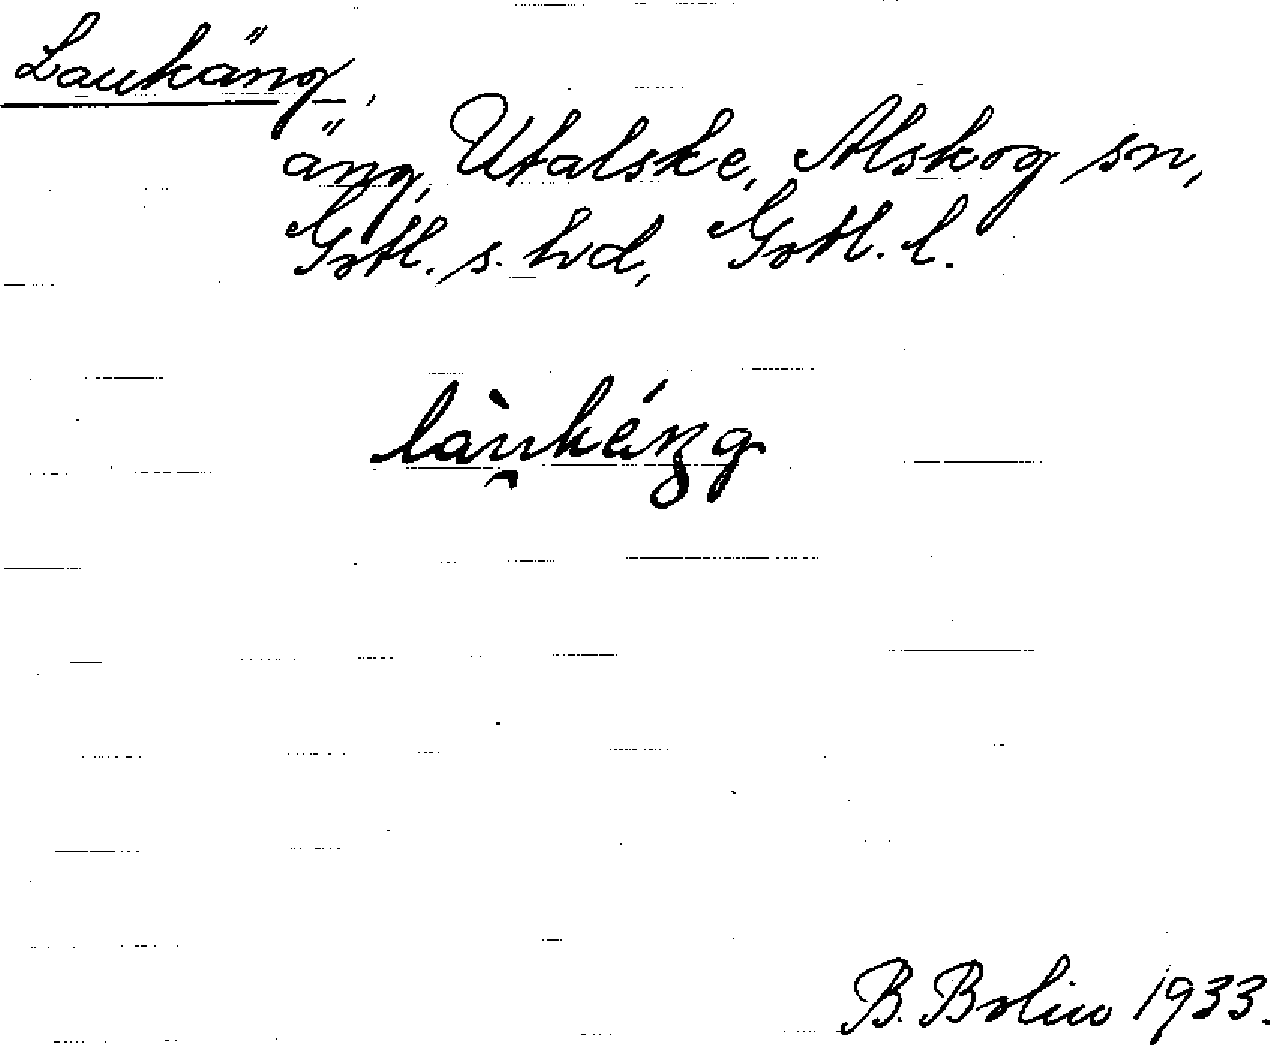 Laukäng,
äng, Utalske, Alskog sn,
Gotl. s. hd, Gotl. l.
làu̯kéŋg
B. Bolin 1933.